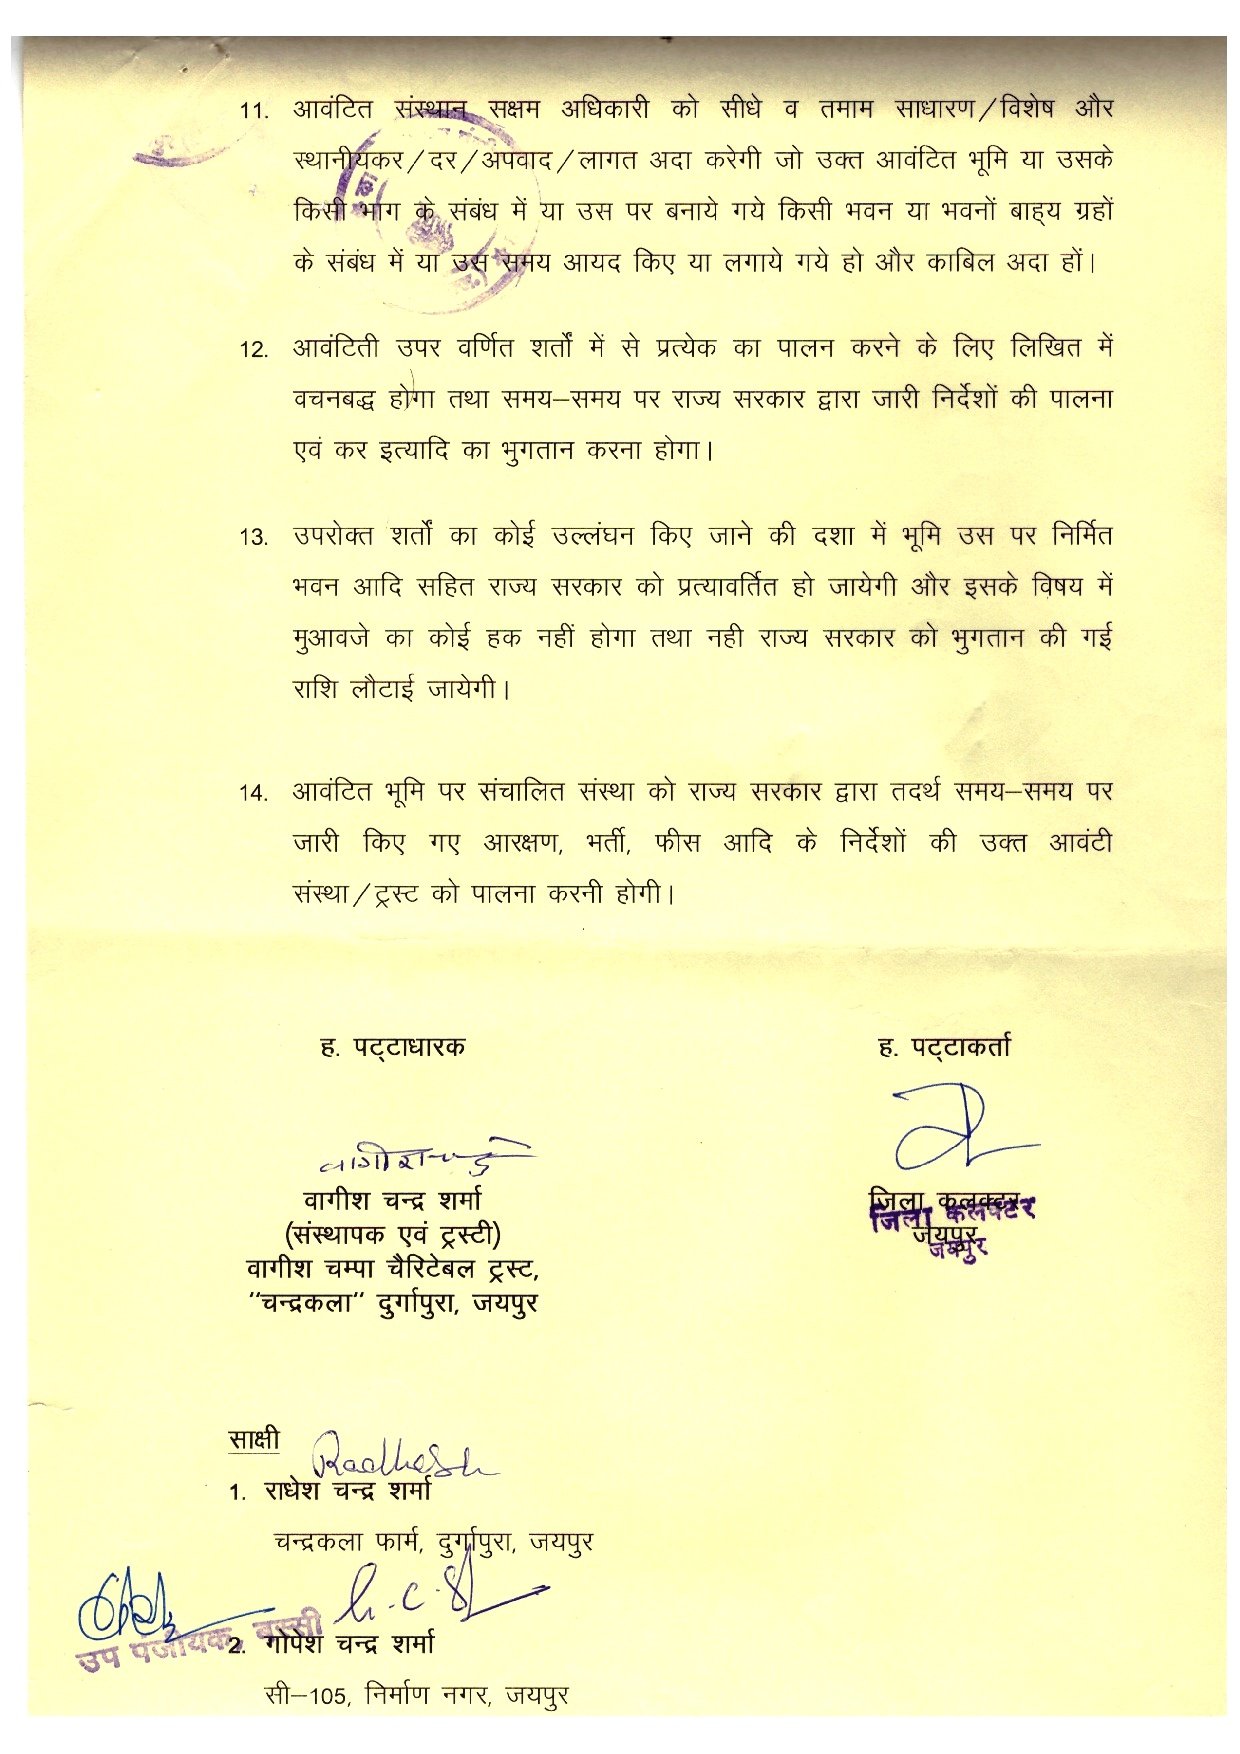 11. आवंटित संस्थान सक्षम अधिकारी को सीधे व तमाम साधारण/विशेष और
स्थानीयकर/दर/अपवाद/लागत अदा करेगी जो उक्त आवंटित भूमि या उसके
किसी भाग के संबंध में या उस पर बनाये गये किसी भवन या भवनों बाह्य ग्रहों
के संबंध में या उस समय आयद किए या लगाये गये हो और काबिल अदा हों।
12. आवंटिती उपर वर्णित शर्तों में से प्रत्येक का पालन करने के लिए लिखित में
वचनबद्ध होगा तथा समय–समय पर राज्य सरकार द्वारा जारी निर्देशों की पालना
एवं कर इत्यादि का भुगतान करना होगा।
13. उपरोक्त शर्तों का कोई उल्लंघन किए जाने की दशा में भूमि उस पर निर्मित
भवन आदि सहित राज्य सरकार को प्रत्यावर्तित हो जायेगी और इसके विषय में
मुआवजे का कोई हक नहीं होगा तथा नही राज्य सरकार को भुगतान की गई
राशि लौटाई जायेगी।
14. आवंटित भूमि पर संचालित संस्था को राज्य सरकार द्वारा तदर्थ समय–समय पर
जारी किए गए आरक्षण, भर्ती, फीस आदि के निर्देशों की उक्त आवंटी
संस्था/ट्रस्ट को पालना करनी होगी।
ह. पट्टाधारक ह. पट्टाकर्ता
वागीश चन्द्र
वागीश चन्द्र शर्मा
(संस्थापक एवं ट्रस्टी)
वागीश चम्पा चैरिटेबल ट्रस्ट,
"चन्द्रकला" दुर्गापुरा, जयपुर
जिला कलक्टर
जिला कलक्टर
जयपुर
जयपुर
साक्षी
Radhesh
1. राधेश चन्द्र शर्मा
चन्द्रकला फार्म, दुर्गापुरा, जयपुर
उप पंजीयक, बस्सी
2. गोपेश चन्द्र शर्मा
सी–105, निर्माण नगर, जयपुर